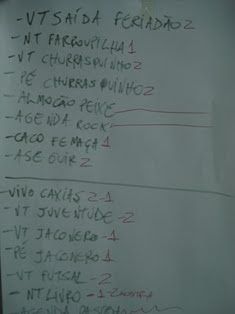 - VT SAÍDA FERIADÃO 2
- NT FARROUPILHA 1
- VT CHURRASQUINHO 2
- PÉ CHURRASQUINHO 2
- ALMOÇÃO PEIXE
- AGENDA ROCK
- CACO FEMAÇA 1
- ASE GUIR 2
- VIVO CAXIAS 2-1
- VT JUVENTUDE - 2
- VT JACONERO - 1
- PÉ JACONERO 1
- VT FUTSAL - 2
- NT LIVRO - 1
- AGENDA